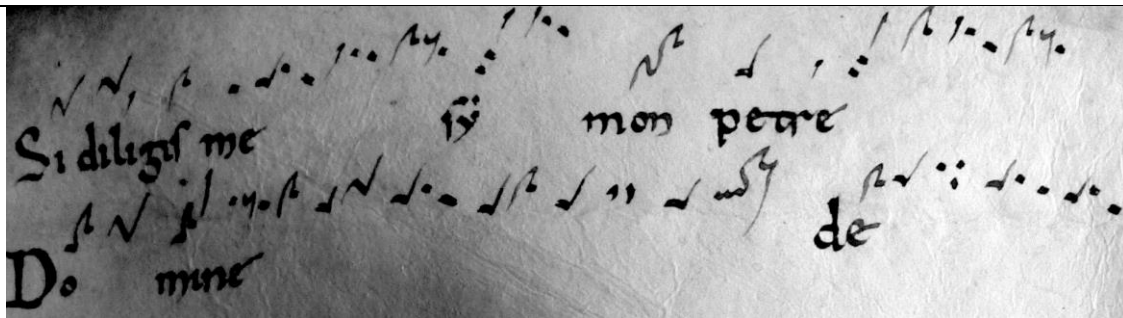 Si diligiſ me sẏ mon petre
Do mine de